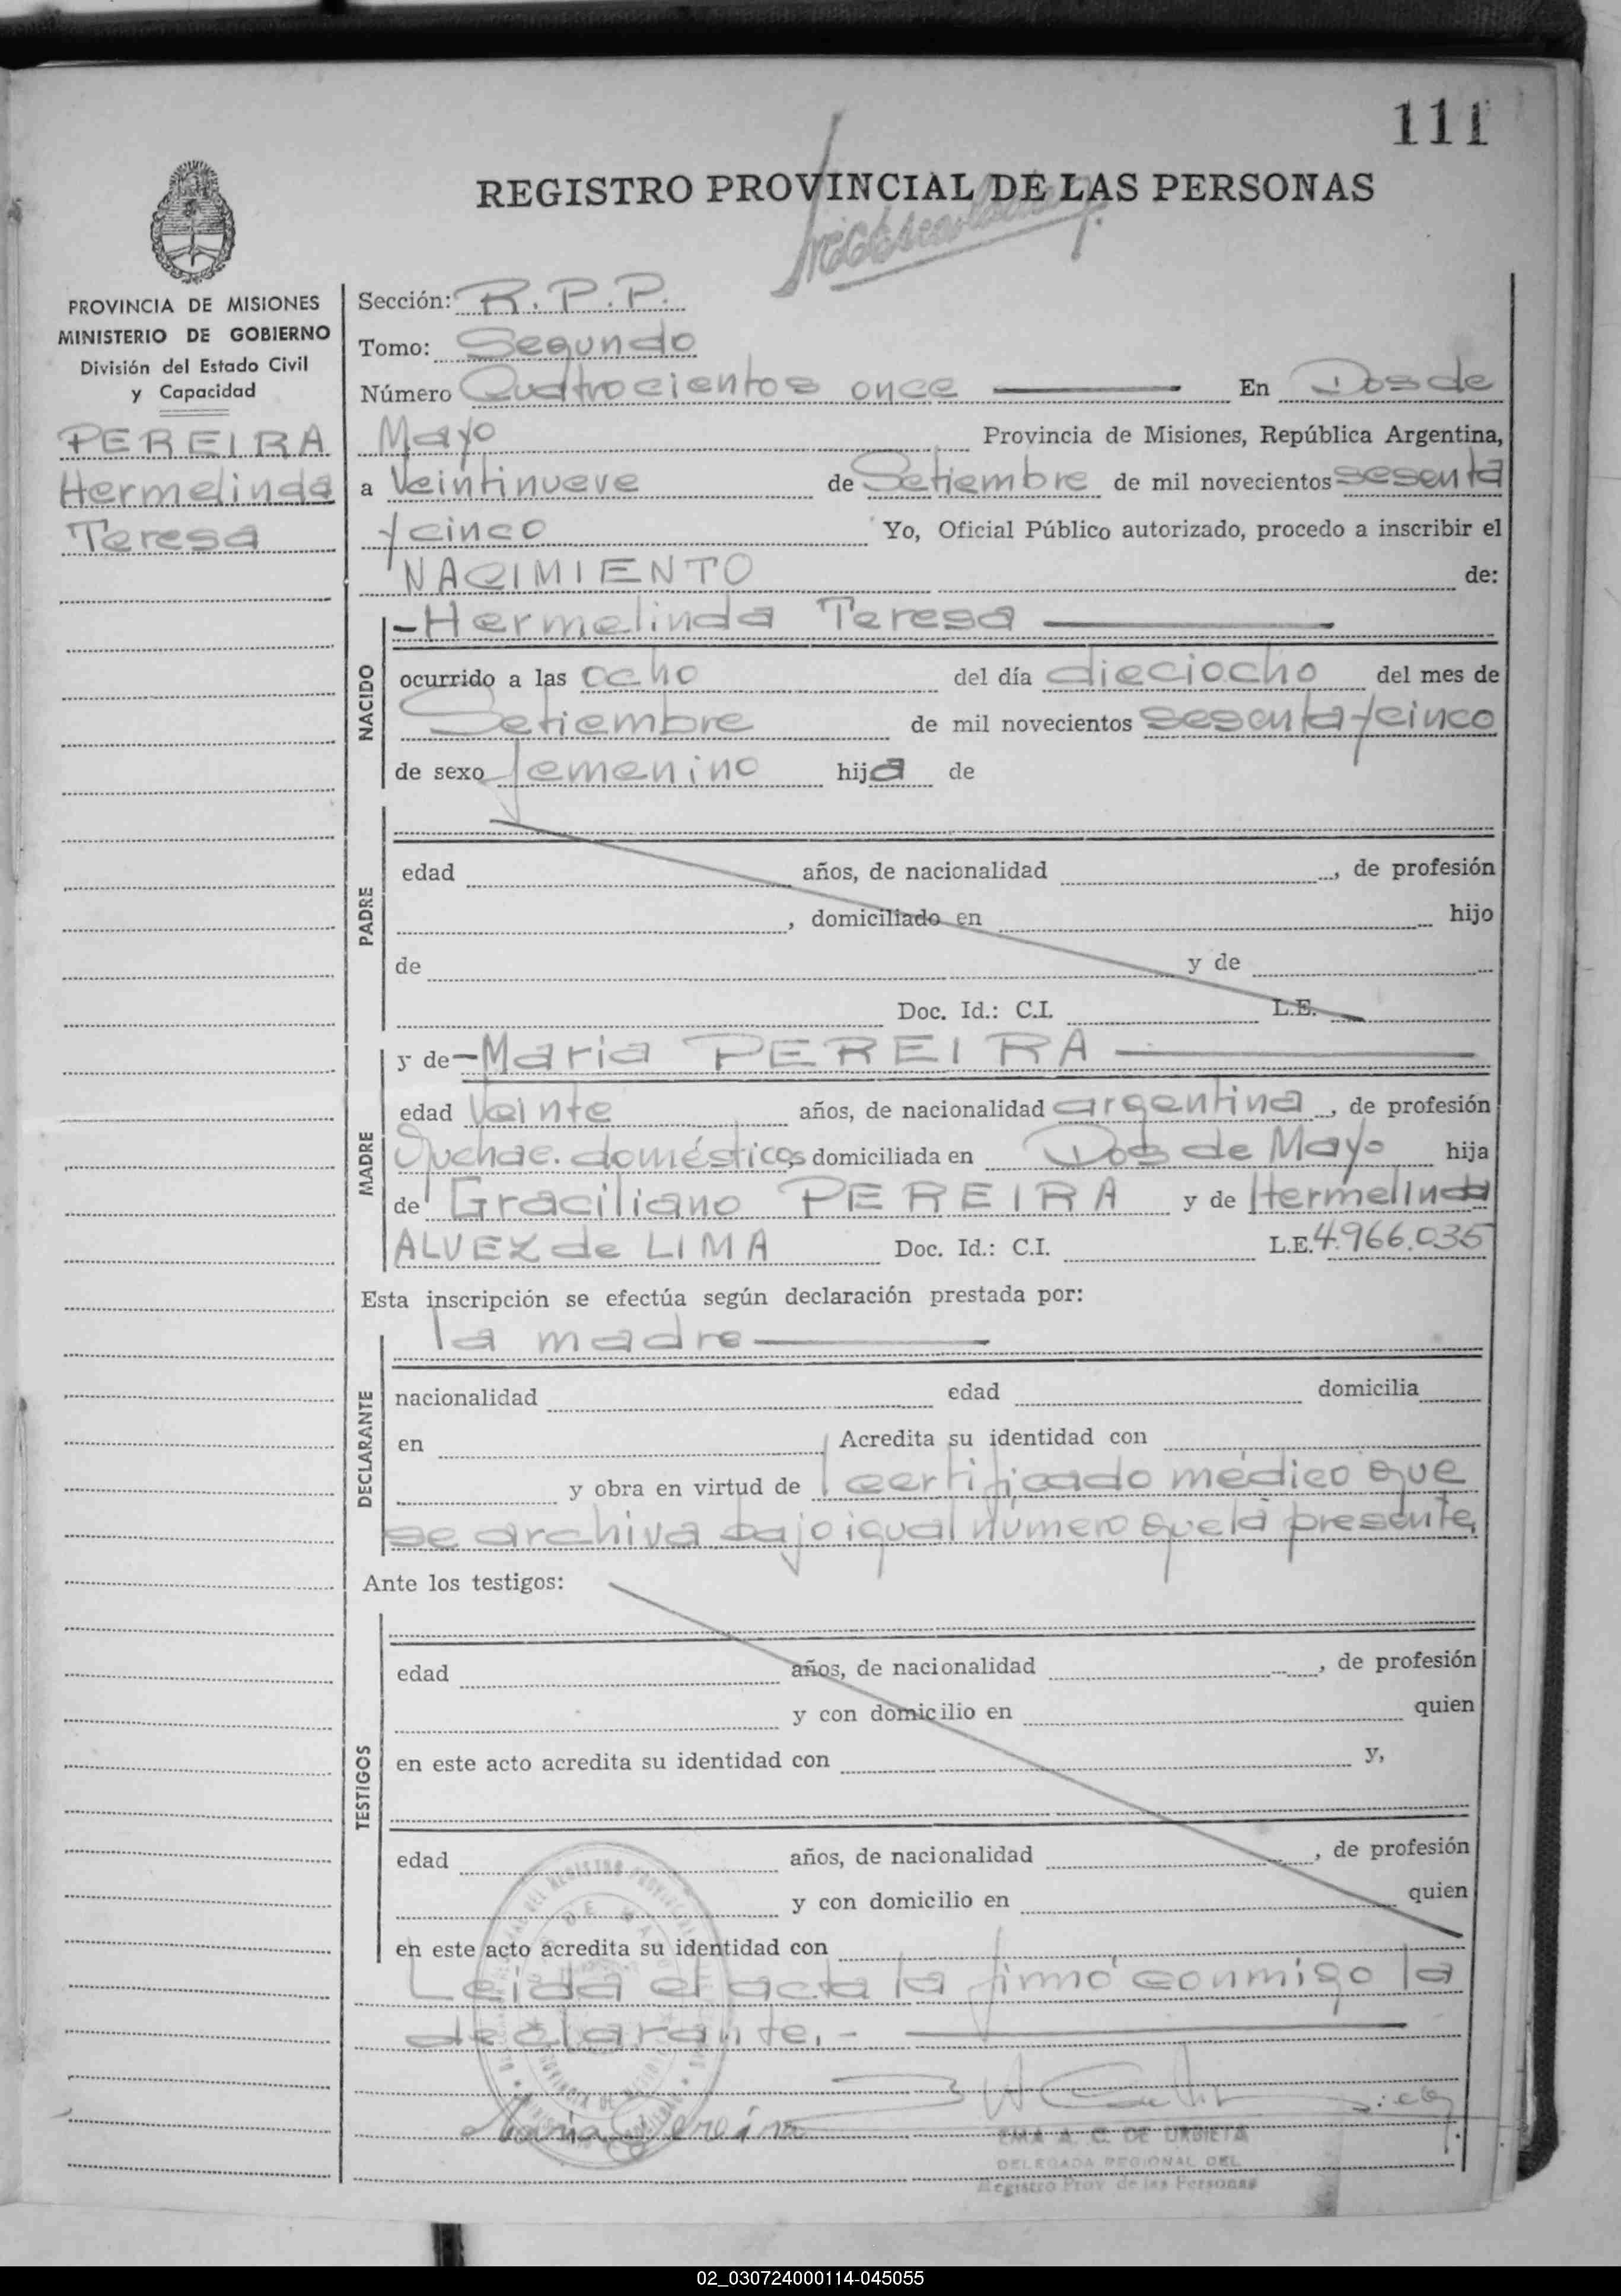 111
REGISTRO PROVINCIAL DE LAS PERSONAS
PROVINCIA DE MISIONES
MINISTERIO DE GOBIERNO
División del Estado Civil
y Capacidad
PEREIRA
Hermelinda
Teresa
Sección: R.P.P.
Tomo: Segundo
Número Cuatrocientos once En Dos de
Mayo Provincia de Misiones, República Argentina,
a Veintinueve de Setiembre de mil novecientos sesenta
y cinco Yo, Oficial Público autorizado, procedo a inscribir el
NACIMIENTO de:
NACIDO
-Hermelinda Teresa
ocurrido a las ocho del día dieciocho del mes de
Setiembre de mil novecientos sesenta y cinco
de sexo femenino hija de
PADRE
edad años, de nacionalidad , de profesión
, domiciliado en hijo
de y de
Doc. Id.: C.I. L.E.
MADRE
y de -Maria PEREIRA
edad Veinte años, de nacionalidad argentina, de profesión
Quehac. domésticos domiciliada en Dos de Mayo hija
de Graciliano PEREIRA y de Hermelinda
ALVEZ de LIMA Doc. Id.: C.I. L.E. 4.966.035
Esta inscripción se efectúa según declaración prestada por:
DECLARANTE
la madre
nacionalidad edad domicilia
en Acredita su identidad con
y obra en virtud de certificado médico que
se archiva bajo igual número que la presente,
Ante los testigos:
TESTIGOS
edad años, de nacionalidad , de profesión
y con domicilio en quien
en este acto acredita su identidad con y,
edad años, de nacionalidad , de profesión
y con domicilio en quien
en este acto acredita su identidad con
Leida el acta la firmó conmigo la
declarante.-
Maria Pereira
EMA A. C. DE URBIETA
DELEGADA REGIONAL DEL
Registro Prov de las Personas
02_030724000114-045055